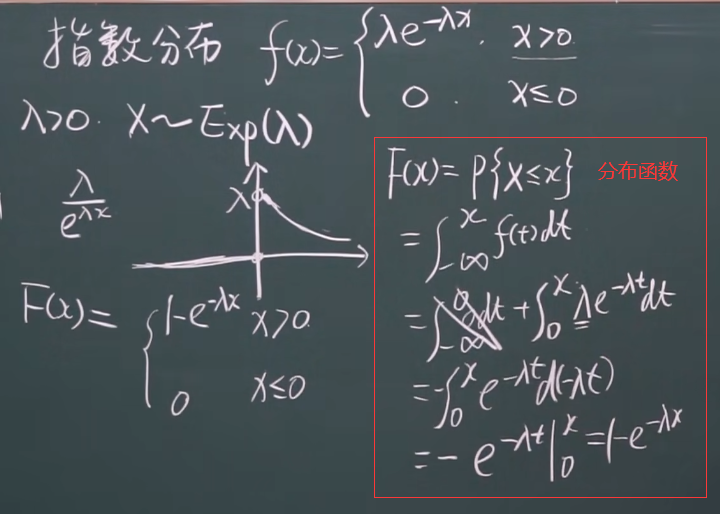 指数分布 f(x)= { λe^{-λx}. x>0.
0 . x≤0
λ>0. X～Exp(λ)
λ/e^{λx}
λ
F(x)= { 1-e^{-λx} x>0.
0 x≤0
F(x)=P{X≤x} 分布函数
=∫_{-∞}^{x} f(t)dt
=∫_{-∞}^{0} 0dt+∫_{0}^{x} λe^{-λt}dt
=-∫_{0}^{x} e^{-λt}d(-λt)
=- e^{-λt}|_{0}^{x} =1-e^{-λx}